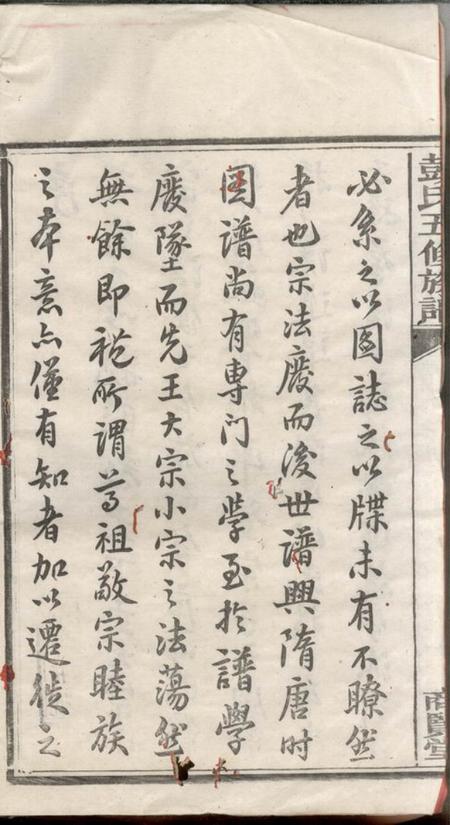 彭氏五修族譜
商賢堂
必系之以圖誌之以牒未有不瞭然
者也宗法廢而後世譜興隋唐時
圖譜尚有專門之學至於譜學
廢墜而先王大宗小宗之法蕩然
無餘即禮所謂尊祖敬宗睦族
之本意亦僅有知者加以遷徙之